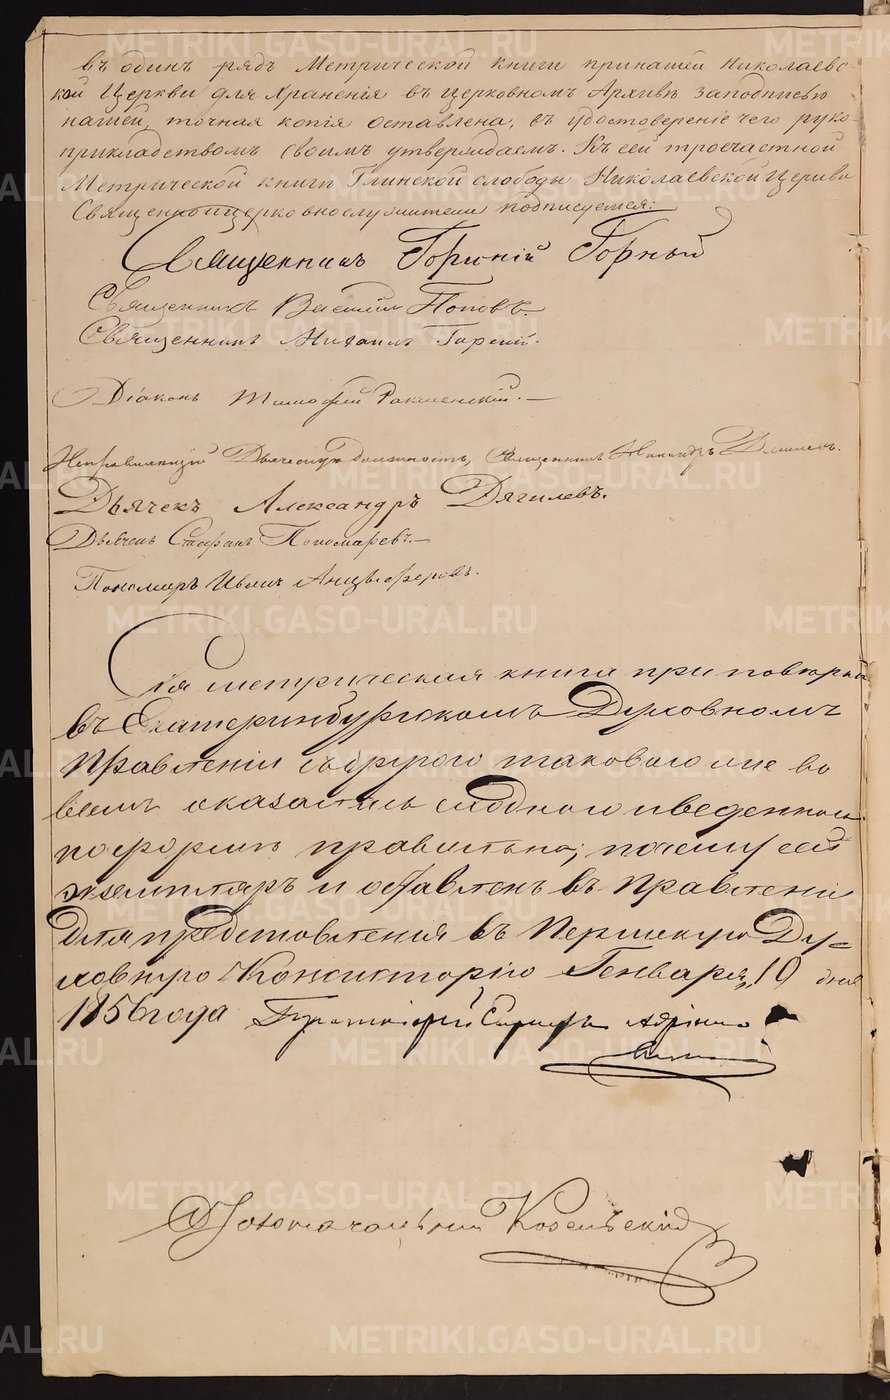 въ одинъ рядъ Метрической книги принашей Николаевс-
кой Церкви для Храненія въ церковномъ Архивѣ заподписью
нашей, точная копія оставлена; въ удостовереніе чего руко-
прикладствомъ своимъ утверждаемъ. Къ сей троечастной
Метрической книги Глинской слободы Николаевской Церкви
Священноицерковнослужители подписуемся:
Священникъ Горный
Священникъ Василій Поповъ.
Священникъ Михаилъ
Діаконъ Тимофей
Исправляющій Дьяческую должность, Священникъ
Дьячекъ Александръ Дягилевъ.
Дьячекъ Стефанъ Пономаревъ.
Пономарь Анцыферовъ.
Сія метрическая книга при поверкѣ
въ Екатеринбургскомъ Духовномъ
Правленіи съ другою таковою же во
всемъ оказалась сходною и веденною
по формѣ правильно; почему сей
экземпляръ и оставленъ въ Правленіи
для предстовленія въ Пермскую Ду-
ховную Консисторію Генваря 19 дня
1856 года
Столоначальникъ Козельскій
METRIKI.GASO-URAL.RU